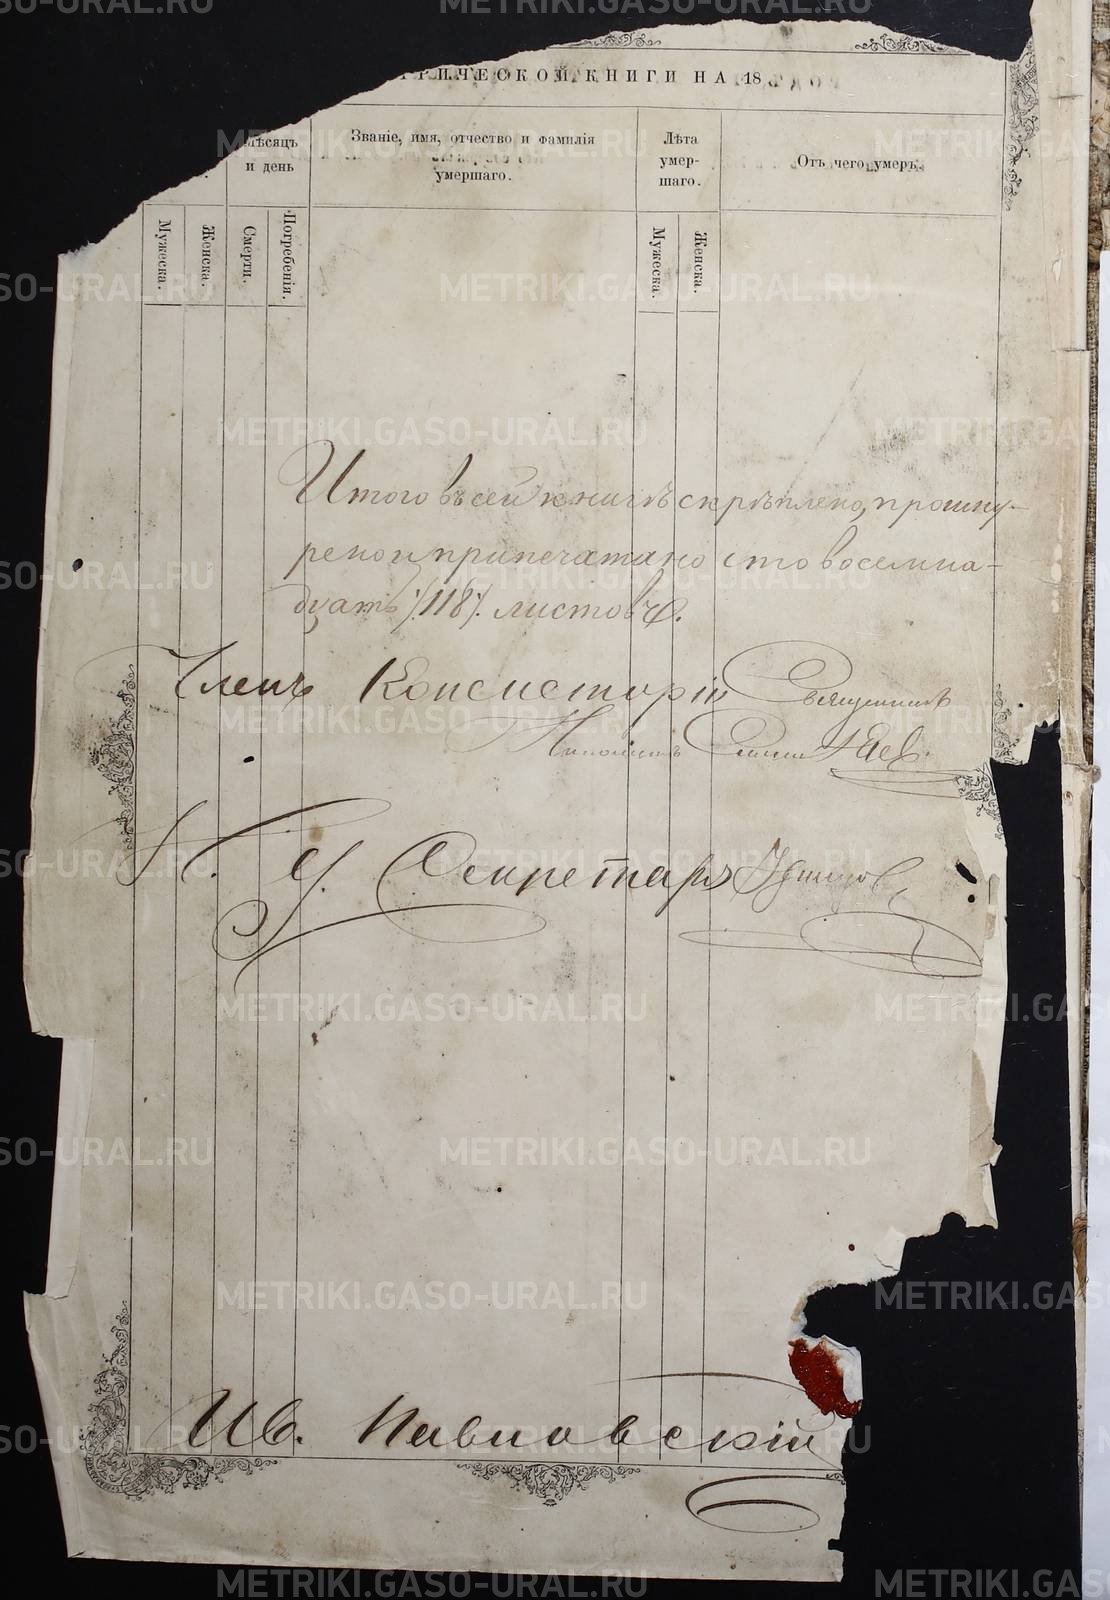 РИЧЕСКОЙ КНИГИ НА 18
Мѣсяцъ и день
Званіе, имя, отчество и фамилія умершаго.
Лѣта умер-шаго.
Отъ чего умеръ.
Мужеска.
Женска.
Смерти.
Погребенія.
Мужеска.
Женска.
Итого въ сей книгѣ скрѣплено, прошну-
рено и припечатано сто восемна-
дцать /:118:/ листовъ.
Членъ Консисторіи Священникъ
И. д. Секретаря
Ив. Павловскій
METRIKI.GASO-URAL.RU